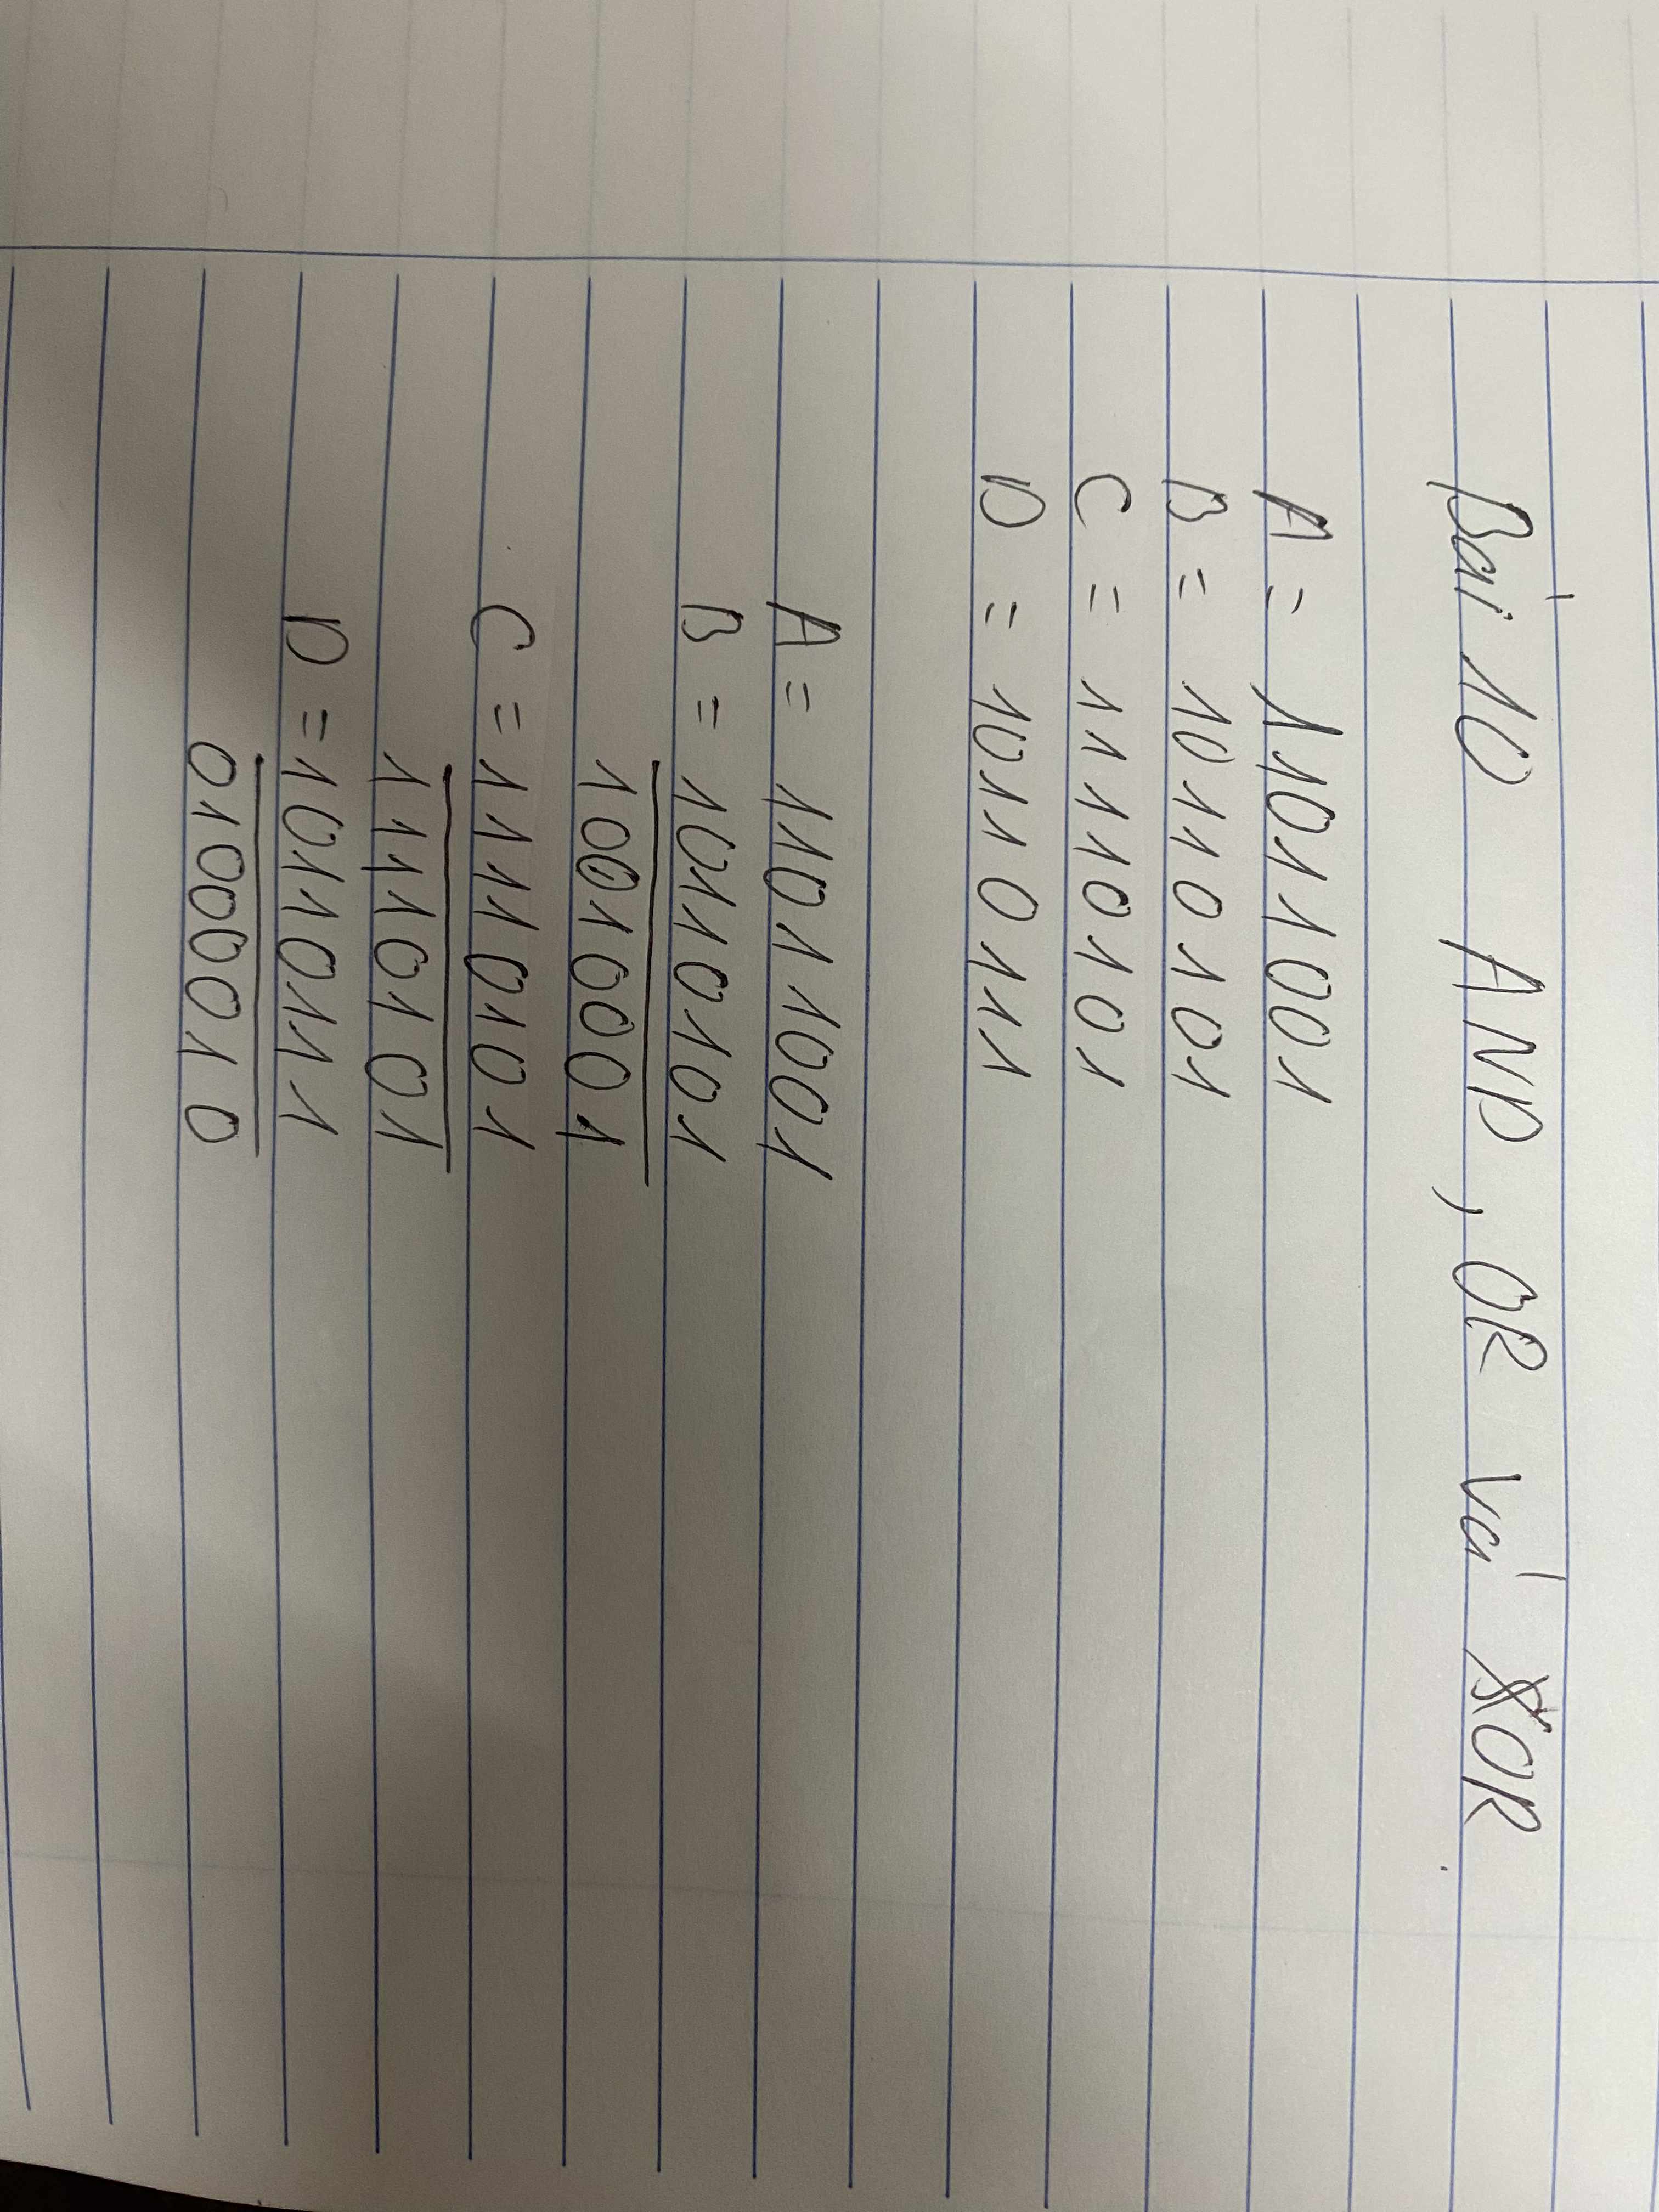 Bài 10 AND, OR và XOR
A = 11011001
B = 10110101
C = 11110101
D = 10110111
A = 11011001
B = 10110101
10010001
C = 11110101
11110101
D = 10110111
01000010